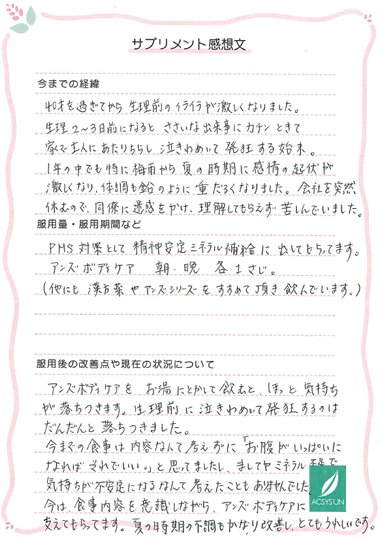 サプリメント感想文
今までの経緯
40才を過ぎてから 生理前のイライラが激しくなりました。
生理2〜3日前になると ささいな出来事に カチンときて
家で主人にあたりちらし 泣きわめいて 発狂する始末。
1年の中でも特に梅雨から 夏の時期に感情の起伏が
激しくなり、体調も鉛のように重だるくなりました。会社を突然
休むので、同僚に迷惑をかけ、理解してもらえず 苦しんでいました。
服用量・服用期間など
PMS対策として 精神安定ミネラル補給に 出してもらってます。
アンズボディケア 朝・晩 各1さじ。
(他にも 漢方薬やアンズシリーズをすすめて頂き飲んでいます。)
服用後の改善点や現在の状況について
アンズボディケアを お湯にとかして飲むと、ほっと気持ち
が落ちつきます。生理前に泣きわめいて発狂するのは
だんだんと 落ちつきました。
今までの食事は 内容なんて考えずに「お腹がいっぱいに
なれば それでいい。」と思ってましたし、ましてや ミネラル
気持ちが不安定になるなんて考えたこともありませんでした
今は、食事内容を意識しながら、アンズボディケアに
支えてもらってます。夏の時期の不調もかなり改善し、とてもうれしいです。
ACSYSUN